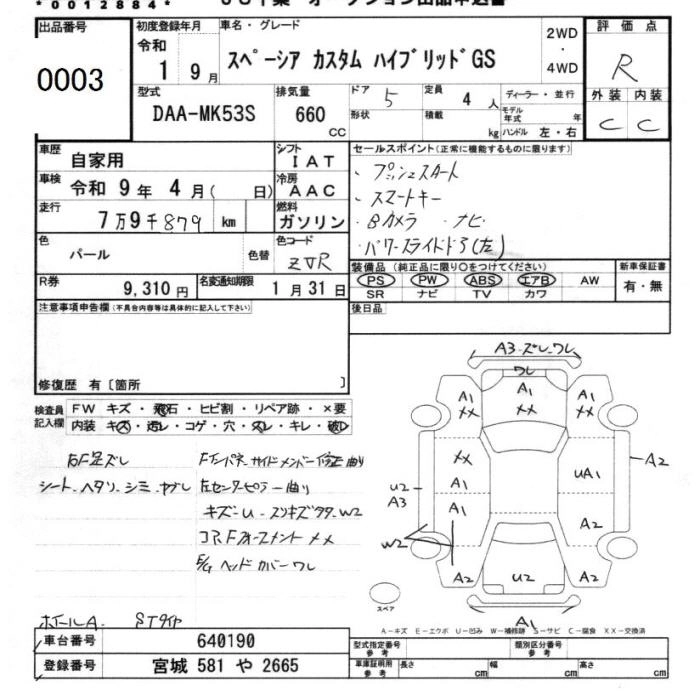 *0012884*
出品番号
0003
初度登録年月
令和
1 9 月
車名・グレード
スペーシア カスタム ハイブリッドGS
2WD
・
4WD
評価点
R
外装 内装
C C
型式
DAA-MK53S
排気量
660
CC
ドア 5
定員 4 人
形状
積載 kg
ディーラー・並行
モデル年式 年
ハンドル 左・右
車歴 自家用
車検 令和 9 年 4 月( 日)
走行 7万9千879 km
シフト IAT
冷房 AAC
燃料 ガソリン
セールスポイント(正常に機能するものに限ります)
・プッシュスタート
・スマートキー
・Bカメラ ・ナビ
・パワースライドドア(左)
色 パール 色替
色コード ZVR
R券 9,310 円
名変通知期限 1 月 31 日
装備品 (純正品に限り〇をつけてください)
PS PW ABS エアB AW
SR ナビ TV カワ
新車保証書
有・無
注意事項申告欄(不具合内容等は具体的に記入して下さい)
後日品
修復歴 有〔箇所 〕
検査員記入欄
FW キズ・飛石・ヒビ割・リペア跡・×要
内装 キズ・汚レ・コゲ・穴・スレ・キレ・破レ
シート ヘタリ シミ ヤブレ
左センターピラー曲り
E/G ヘッドカバーワレ
ホイールA STタイヤ
A3 ズレ ワレ
ワレ
A1 A1 A1
XX XX XX
XX
A1
A1
U2
A3
W2
UA1
A2
A2
A2 U2 A2
A1
スペア
A-キズ E-エクボ U-凹み W-補修跡 S-サビ C-腐食 XX-交換済
車台番号 640190
登録番号 宮城 581 や 2665
型式指定番号 参考
類別区分番号 参考
車庫証明用 参考 長さ cm 幅 cm 高さ cm